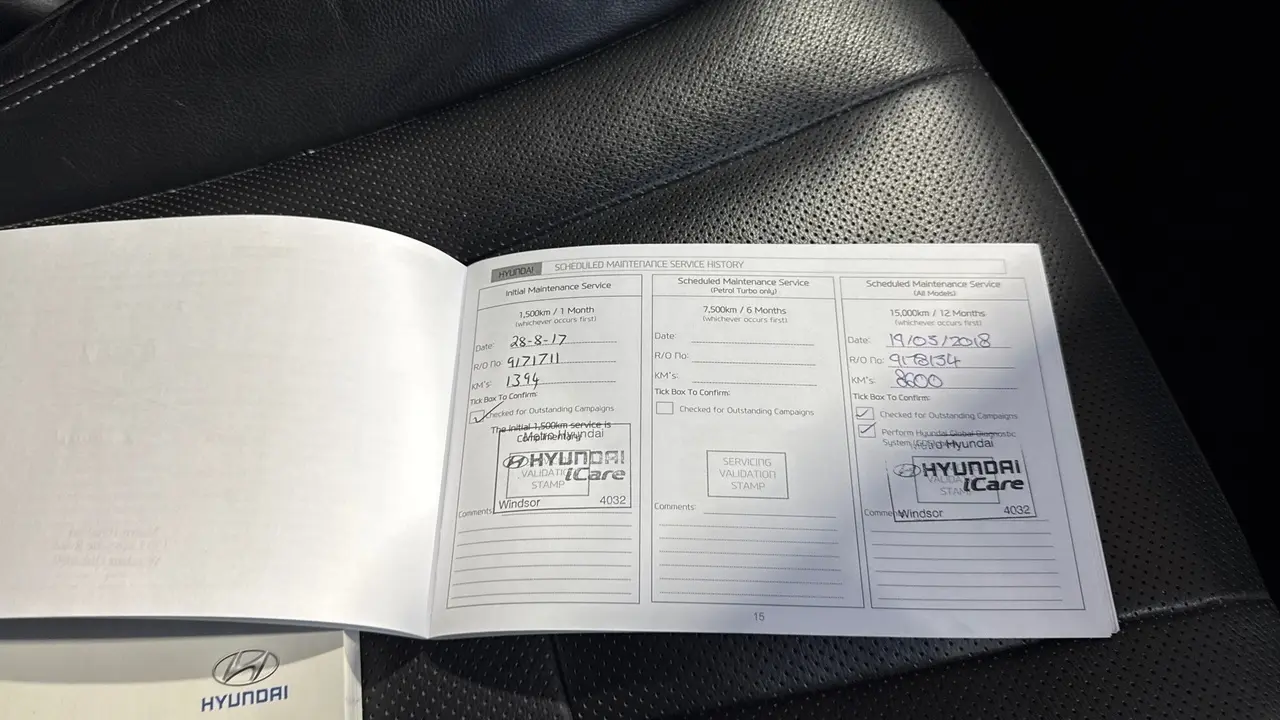 HYUNDAI SCHEDULED MAINTENANCE SERVICE HISTORY
Initial Maintenance Service
1,500km / 1 Month
(whichever occurs first)
Date: 28-8-17
R/O No: 9171711
KM's: 1394
Tick Box To Confirm:
Checked for Outstanding Campaigns
The initial 1,500km service is
Complimentary
Metro Hyundai
HYUNDAI
VALIDATION
iCare
STAMP
Windsor 4032
Comments:
Scheduled Maintenance Service
(Petrol Turbo only)
7,500km / 6 Months
(whichever occurs first)
Date:
R/O No:
KM's:
Tick Box To Confirm:
Checked for Outstanding Campaigns
SERVICING
VALIDATION
STAMP
Comments:
Scheduled Maintenance Service
(All Models)
15,000km / 12 Months
(whichever occurs first)
Date: 19/05/2018
R/O No: 9178134
KM's: 8600
Tick Box To Confirm:
Checked for Outstanding Campaigns
Perform Hyundai Global Diagnostic
System
Metro Hyundai
HYUNDAI
iCare
Windsor 4032
15
HYUNDAI